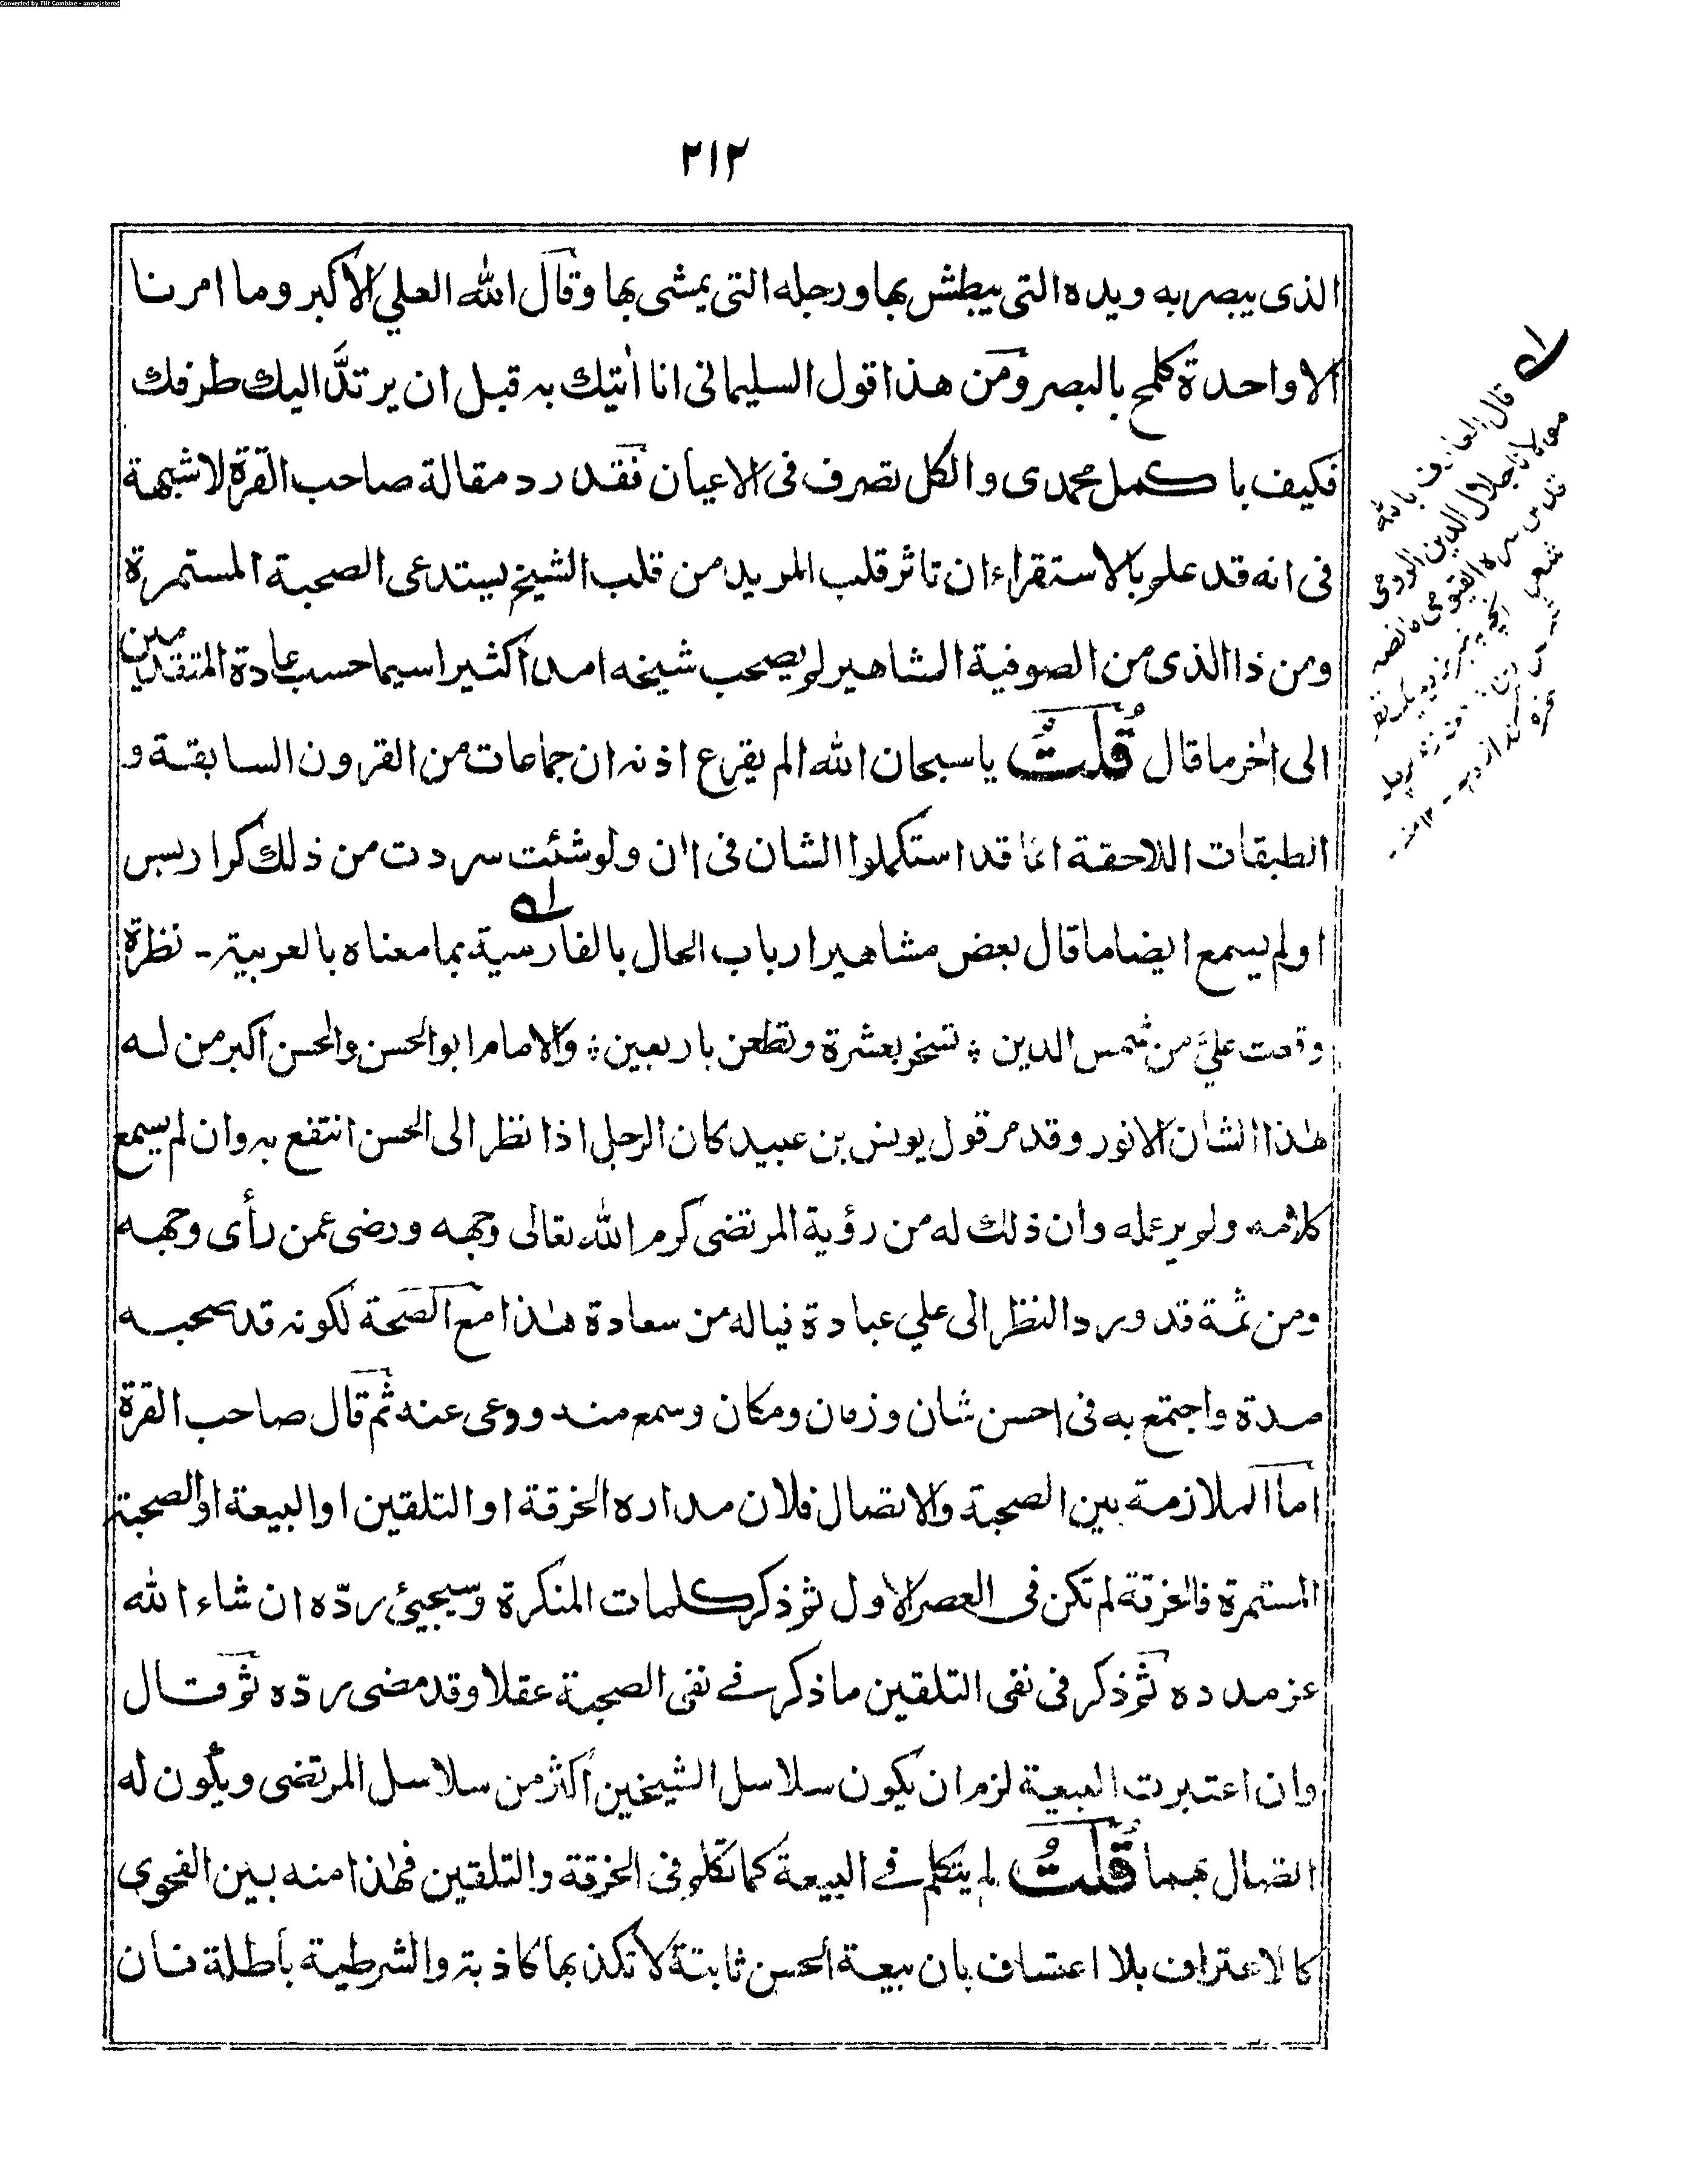 Converted by Tiff Combine - unregistered
٢١٢
الذى يبصر به ويده التى يبطش بها ورجله التى يمشى بها وقال الله العلي الاكبر وما امرنا
الا واحدة كلمح بالبصر ومن هذا قول السليمانى انا اٰتيك به قبل ان يرتدَّ اليك طرفك
فكيف باكمل محمدى والكل تصرف فى الاعيان فقد رد مقالة صاحب القرة لا شبهة
فى انه قد علم بالاستقراء ان تاثر قلب المريد من قلب الشيخ يستدعى الصحبة المستمرة
ومن ذا الذى من الصوفية المشاهير لم يصحب شيخه امدا كثيرا سيما حسب عادة المتقدمين
الى اٰخر ما قال قُلتُ يا سبحان الله الم يقرع اذنه ان جماعات من القرون السابقة و
الطبقات اللاحقة انما قد استكملوا الشان فى اٰن ولو شئت سردت من ذلك كراريس
اولم يسمع ايضا ما قال بعض مشاهير ارباب الحال بالفارسية بما معناه بالعربية - نظرة
وقعت عليَّ من شمس الدين ؛ تسخر بعشرة وتطعن باربعين ؛ والامام ابو الحسن والحسن اكبر من له
هٰذا الشان الانور وقد مر قول يونس بن عبيد كان الرجل اذا نظر الى الحسن انتفع به وان لم يسمع
كلامه ولم ير عمله وان ذلك له من رؤية المرتضى كرم الله تعالى وجهه ورضى عمن رأى وجهه
ومن ثمة قد ورد النظر الى علي عبادة فياله من سعادة هٰذا مع الصحة لكونه قد صحبه
مدة واجتمع به فى احسن شان وزمان ومكان وسمع منه ووعى عنه ثم قال صاحب القرة
اما الملازمة بين الصحبة والاتصال فلان مداره الخرقة او التلقين او البيعة او الصحبة
المستمرة فالخرقة لم تكن فى العصر الاول ثم ذكر كلمات المنكرة وسيجيئ ردّه ان شاء الله
عز مدده ثم ذكر فى نفى التلقين ما ذكر فى نفى الصحبة عقلا وقد مضى ردّه ثم قال
وان اعتبرت البيعة لزم ان يكون سلاسل الشيخين أكثر من سلاسل المرتضى ويكون له
اتصال بهما قُلتُ لم يتكلم فى البيعة كما تكلم فى الخرقة والتلقين فهٰذا منه بين الفحوى
كالاعتراف بلا اعتساف بان بيعة الحسن ثابتة لا تكذبها كاذبة والشرطية باطلة فان
له قال العارف بالله
مولانا جلال الدين الرومى
قدس سره القيومى ما نصه
شعر